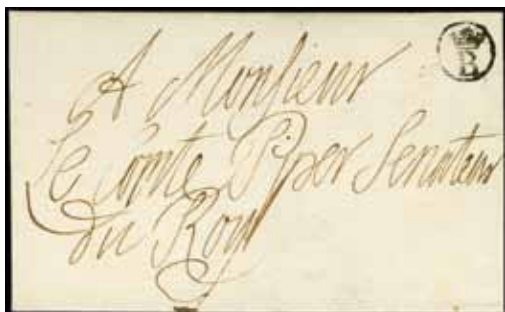 A Monsieur
Le Comte Piper Senateur
du Roy
B